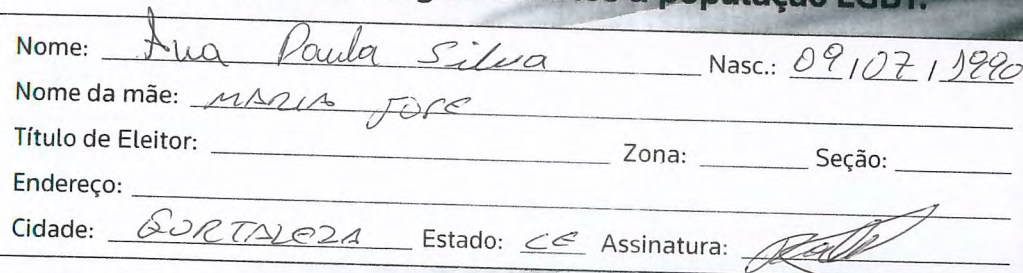 população LGBT.
Nome: Ana Paula Silva Nasc.: 09/07/1990
Nome da mãe: MARIA JOSE
Título de Eleitor: Zona: Seção:
Endereço:
Cidade: FORTALEZA Estado: CE Assinatura: